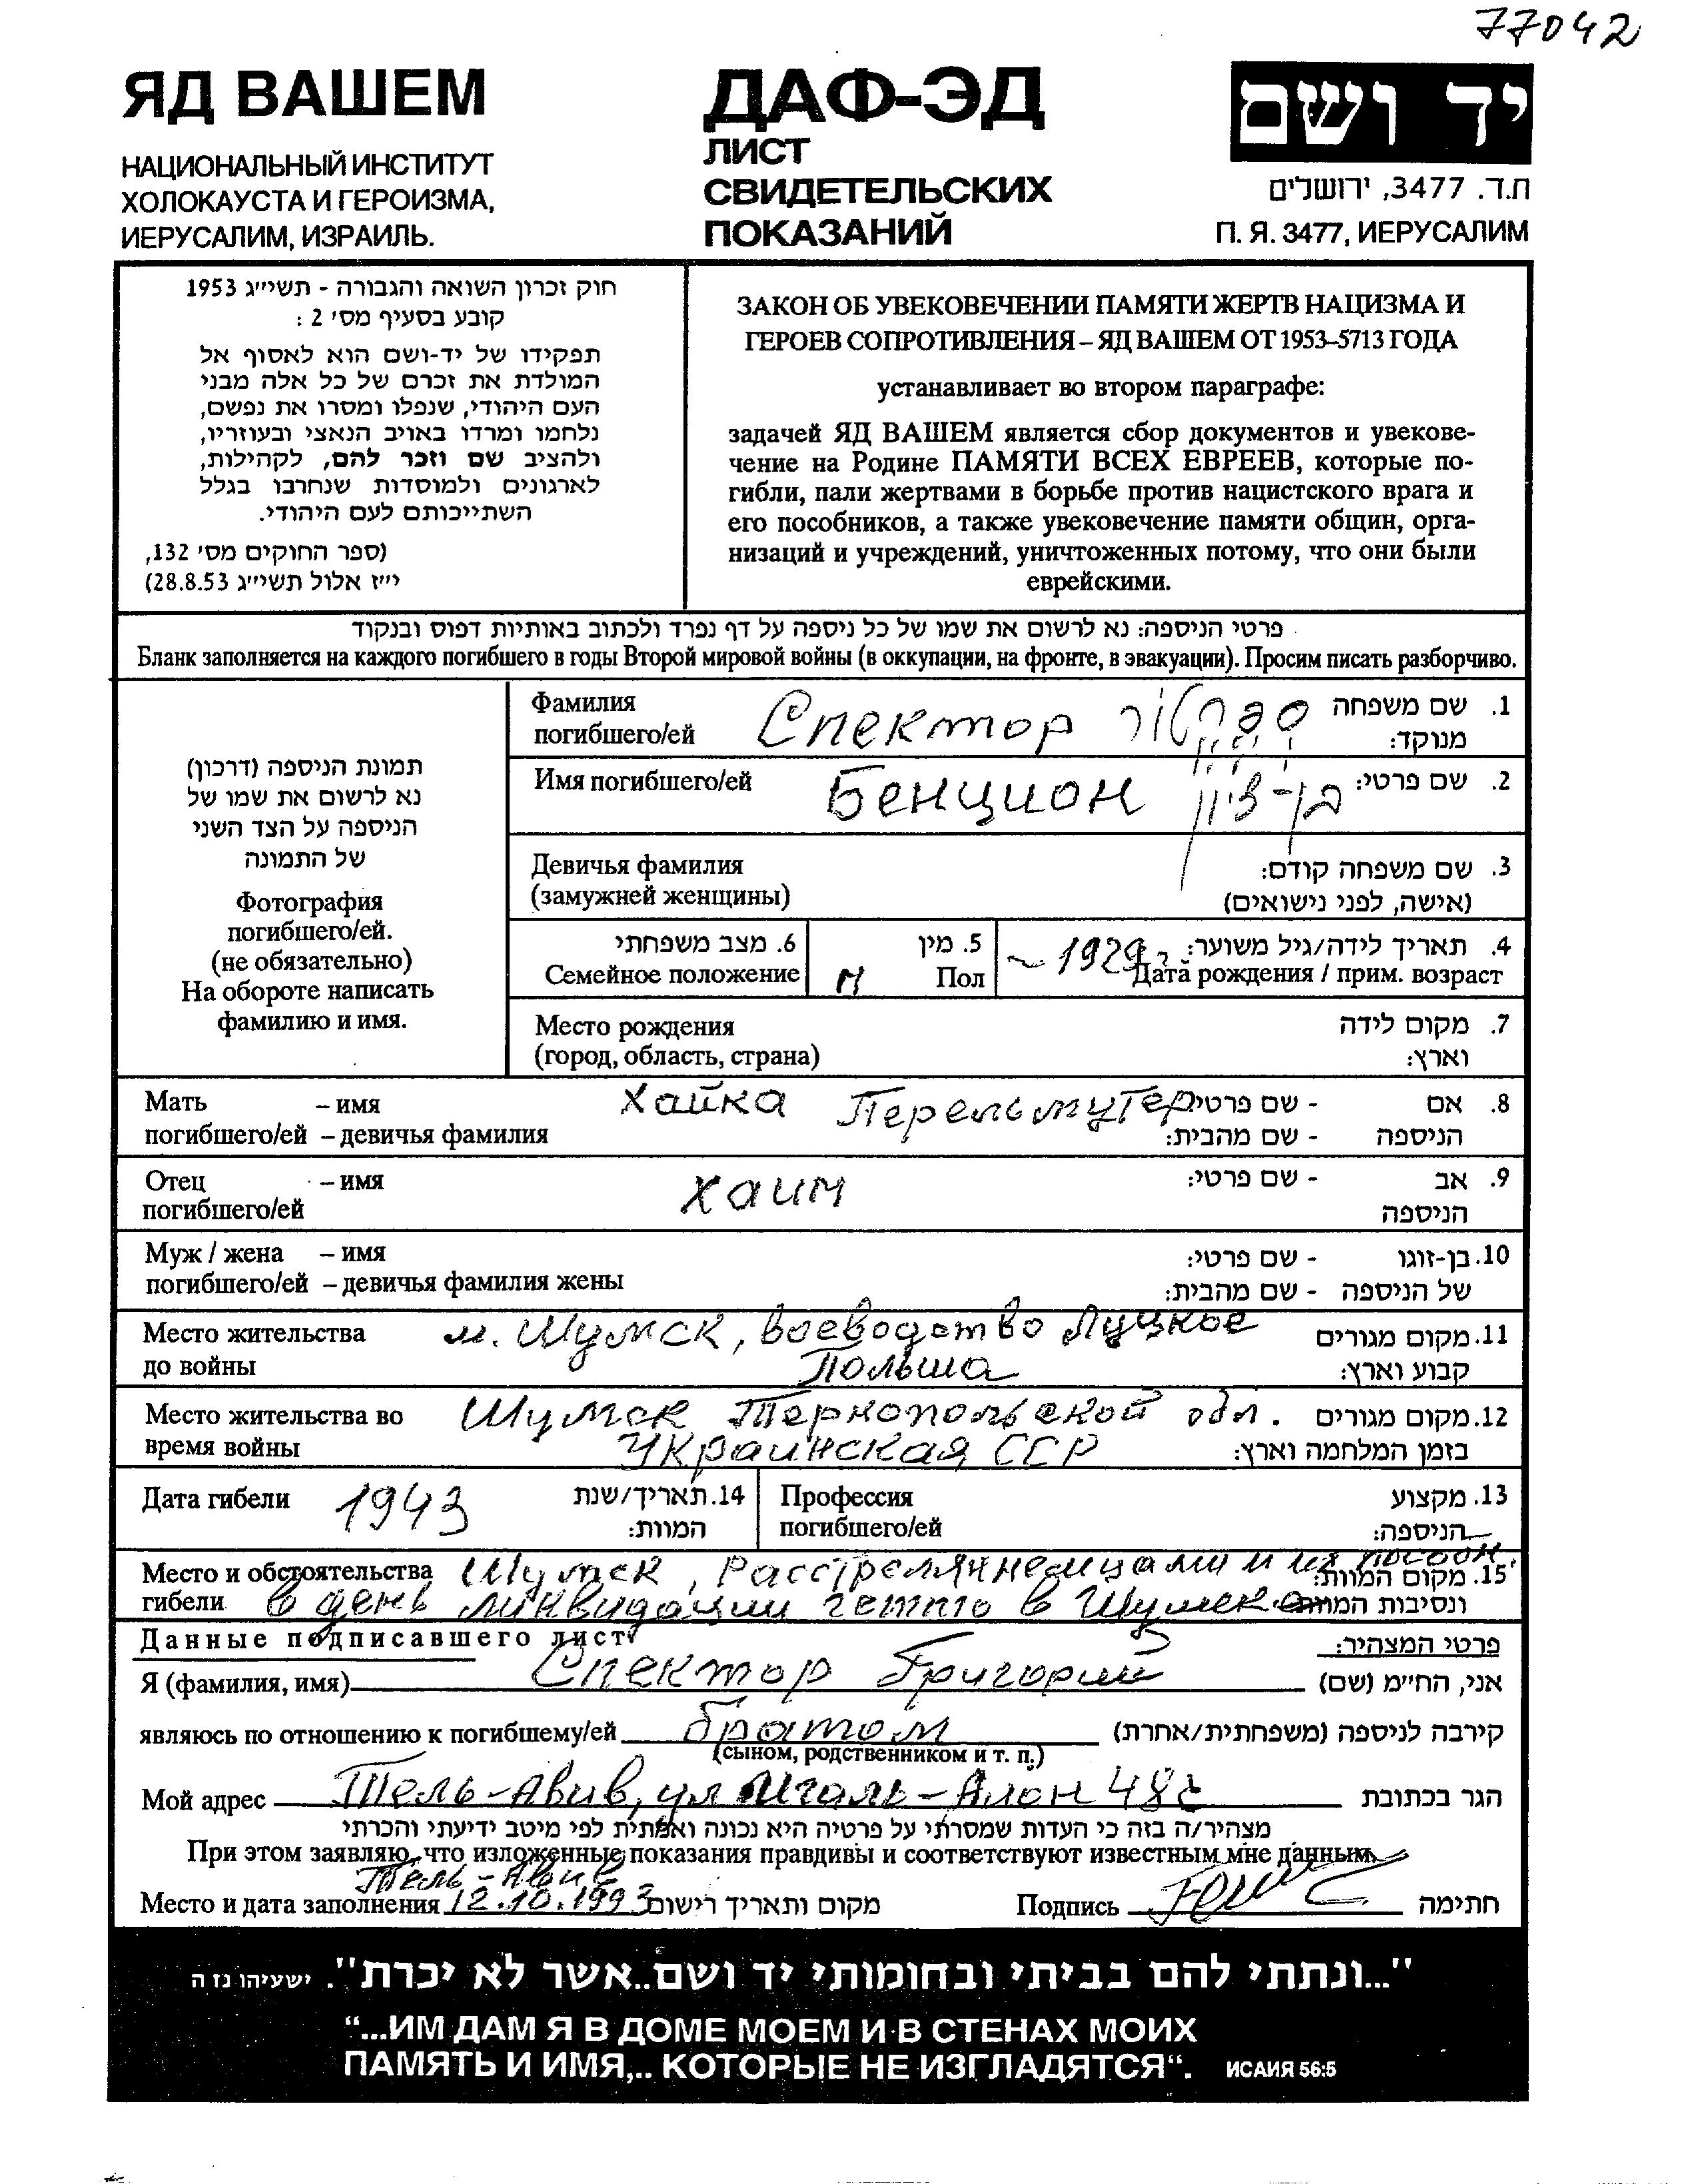 77042
ЯД ВАШЕМ
НАЦИОНАЛЬНЫЙ ИНСТИТУТ
ХОЛОКАУСТА И ГЕРОИЗМА,
ИЕРУСАЛИМ, ИЗРАИЛЬ.
ДАФ-ЭД
ЛИСТ
СВИДЕТЕЛЬСКИХ
ПОКАЗАНИЙ
יד ושם
ת.ד. 3477, ירושלים
П. Я. 3477, ИЕРУСАЛИМ
חוק זכרון השואה והגבורה - תשי״ג 1953
קובע בסעיף מס׳ 2 :
תפקידו של יד-ושם הוא לאסוף אל
המולדת את זכרם של כל אלה מבני
העם היהודי, שנפלו ומסרו את נפשם,
נלחמו ומרדו באויב הנאצי ובעוזריו,
ולהציב שם וזכר להם, לקהילות,
לארגונים ולמוסדות שנחרבו בגלל
השתייכותם לעם היהודי.
(ספר החוקים מס׳ 132,
י״ז אלול תשי״ג 28.8.53)
ЗАКОН ОБ УВЕКОВЕЧЕНИИ ПАМЯТИ ЖЕРТВ НАЦИЗМА И
ГЕРОЕВ СОПРОТИВЛЕНИЯ – ЯД ВАШЕМ ОТ 1953–5713 ГОДА
устанавливает во втором параграфе:
задачей ЯД ВАШЕМ является сбор документов и увекове-
чение на Родине ПАМЯТИ ВСЕХ ЕВРЕЕВ, которые по-
гибли, пали жертвами в борьбе против нацистского врага и
его пособников, а также увековечение памяти общин, орга-
низаций и учреждений, уничтоженных потому, что они были
еврейскими.
פרטי הניספה: נא לרשום את שמו של כל ניספה על דף נפרד ולכתוב באותיות דפוס ובנקוד
Бланк заполняется на каждого погибшего в годы Второй мировой войны (в оккупации, на фронте, в эвакуации). Просим писать разборчиво.
תמונת הניספה (דרכון)
נא לרשום את שמו של
הניספה על הצד השני
של התמונה
Фотография
погибшего/ей.
(не обязательно)
На обороте написать
фамилию и имя.
Фамилия Спектор ספקטור 1. שם משפחה
погибшего/ей מנוקד:
Имя погибшего/ей Бенцион בן-ציון 2. שם פרטי:
Девичья фамилия 3. שם משפחה קודם:
(замужней женщины) (אישה, לפני נישואים)
6. מצב משפחתי 5. מין ~ 1929 г. 4. תאריך לידה/גיל משוער:
Семейное положение М Пол Дата рождения / прим. возраст
Место рождения 7. מקום לידה
(город, область, страна) וארץ:
Мать – имя Хайка Перельмутер - שם פרטי: 8. אם
погибшего/ей – девичья фамилия - שם מהבית: הניספה
Отец – имя Хаим - שם פרטי: 9. אב
погибшего/ей הניספה
Муж / жена – имя - שם פרטי: 10. בן-זוגו
погибшего/ей – девичья фамилия жены - שם מהבית: של הניספה
Место жительства м. Шумск, воеводство Луцкое 11. מקום מגורים
до войны Польша קבוע וארץ:
Место жительства во Шумск Тернопольской обл. 12. מקום מגורים
время войны Украинская ССР בזמן המלחמה וארץ:
Дата гибели 1943 14. תאריך/שנת Профессия 13. מקצוע
המוות: погибшего/ей הניספה:
Место и обстоятельства Шумск, Расстрелян немцами и их пособн. 15. מקום המוות:
гибели в день ликвидации гетто в Шумске ונסיבות המוות
Данные подписавшего лист פרטי המצהיר:
Я (фамилия, имя) Спектор Григорий אני, החי״מ (שם)
являюсь по отношению к погибшему/ей братом קירבה לניספה (משפחתית/אחרת)
(сыном, родственником и т. п.)
Мой адрес Тель-Авив, ул Игаль-Алон 48 הגר בכתובת
מצהיר/ה בזה כי העדות שמסרתי על פרטיה היא נכונה ואמתית לפי מיטב ידיעתי והכרתי
При этом заявляю, что изложенные показания правдивы и соответствуют известным мне данным.
Тель-Авив
Место и дата заполнения 12.10.1993 מקום ותאריך רישום Подпись חתימה
"...ונתתי להם בביתי ובחומותי יד ושם..אשר לא יכרת". ישעיהו נז ה
“...ИМ ДАМ Я В ДОМЕ МОЕМ И В СТЕНАХ МОИХ
ПАМЯТЬ И ИМЯ,.. КОТОРЫЕ НЕ ИЗГЛАДЯТСЯ“. ИСАИЯ 56:5